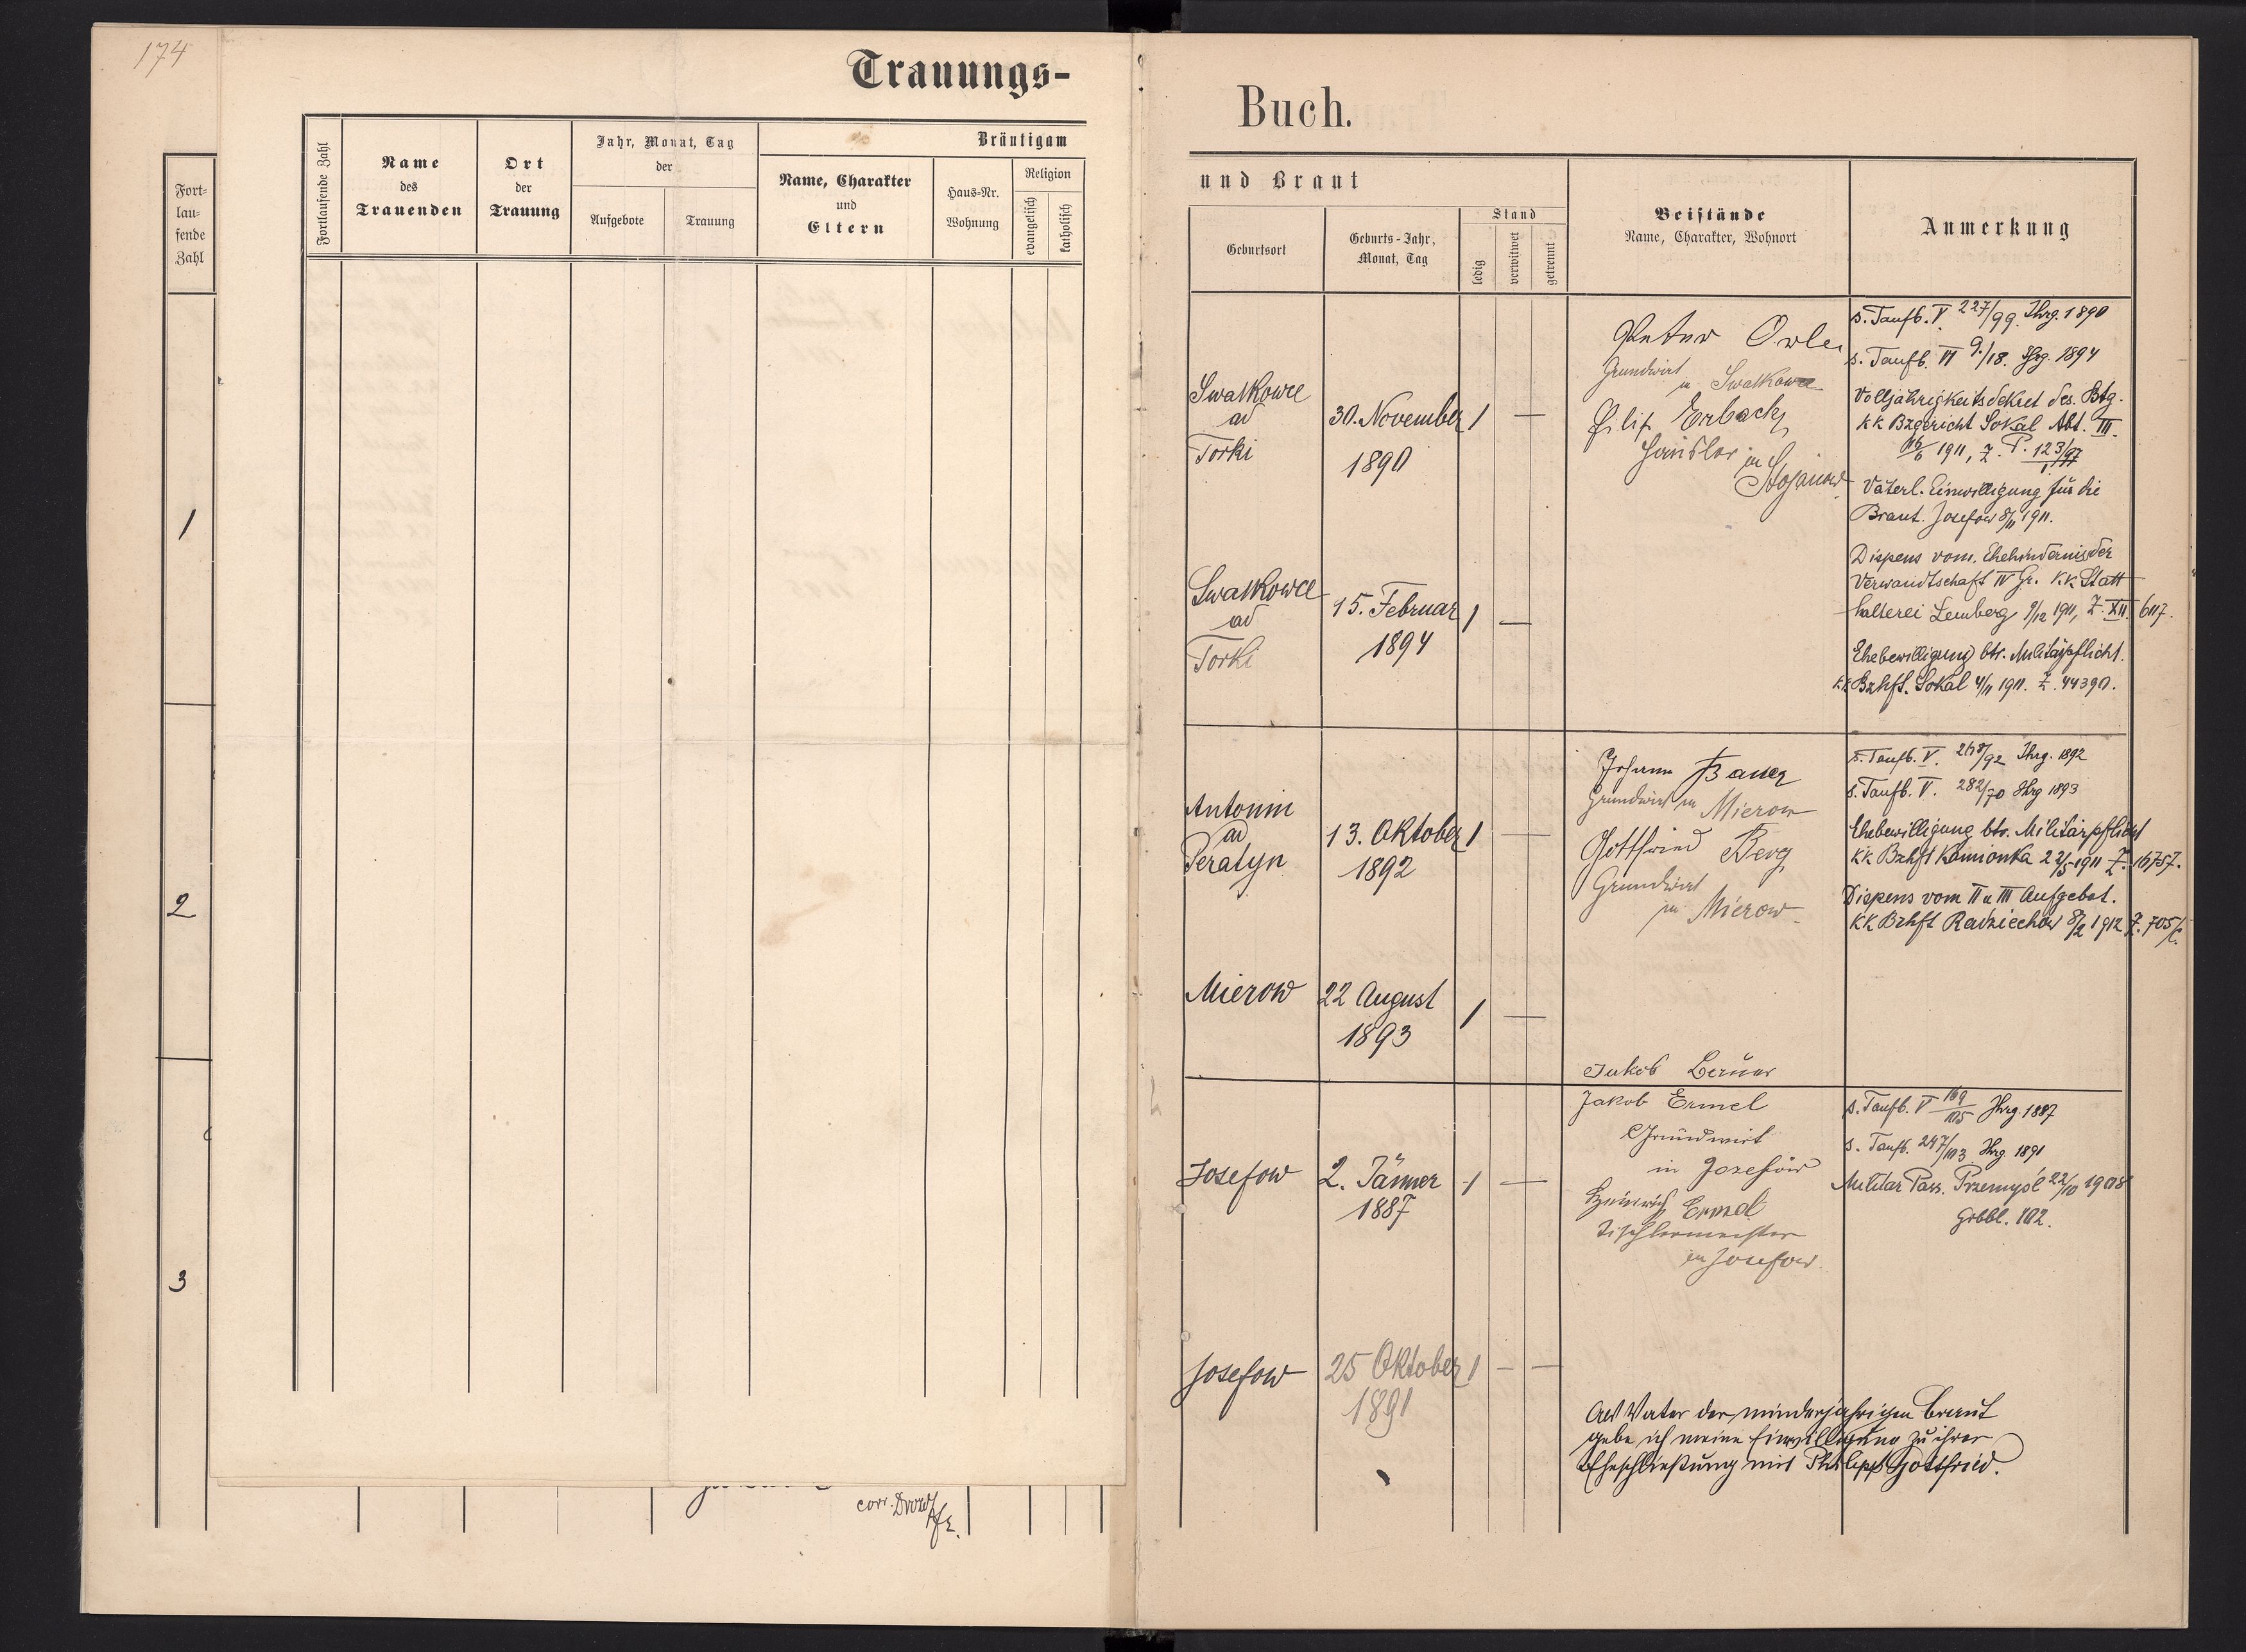 174
Trauungs-
Fort-
lau-
fende
Zahl
Fortlaufende Zahl
Name
des
Trauenden
Ort
der
Trauung
Jahr, Monat, Tag
der
Aufgebote
Trauung
Bräutigam
Name, Charakter
und
Eltern
Haus-Nr.
Wohnung
Religion
evangelisch
katholisch
1
2
3
corr.
Buch.
und Braut
Geburtsort
Geburts-Jahr,
Monat, Tag
Stand
ledig
verwitwet
getrennt
Beistände
Name, Charakter, Wohnort
Anmerkung
Swatkowce
ad
Torki
30. November
1890
1 —
Grundwirt
in Swatkowce
Filip Erbach
in
Stojanow
s. Taufb. V. 227/99. Jhrg. 1890
s. Taufb. VI 9./18. Jhrg. 1894
Volljährigkeitsdekret des. Btg.
kk Bzgericht Sokal Abt. III.
1911, Z. P. 123/97
Väterl. Einwilligung für die
Braut. Josefow 8/11 1911.
Dispens vom. Ehehindernis der
Verwandtschaft IV Gr. k.k Statt
halterei Lemberg 9/12 1911, Z. XII 6117.
Ehebewilligung btr. Militärpflicht.
kk Bzhft. Sokal 4/11 1911. Z. 44390.
Swatkowce
ad
Torki
15. Februar
1894
1 —
Antonin
ad
Peratyn
13. Oktober
1892
1 —
Johann Bauer
Grundwirt in Mierow
Gottfried Berg
Grundwirt
in Mierow
s. Taufb. V. 268/92 Jhrg. 1892
s. Taufb. V. 282/70 Jhrg 1893
Ehebewilligung btr. Militärpflicht
kk Bzhft Kamionka 22/5 1911 Z. 16757.
Dispens vom II u III Aufgebot.
kk Bzhft Radziechów 8/2 1912 Z. 705/C.
Mierow
22 August
1893
1 —
Jakob
Jakob Ermel
Grundwirt
in Jozefów
Heinrich Ermel
Tischlermeister
in Josefow.
Josefow
2. Jänner
1887
1 —
s. Taufb. V 169/105 Jhrg. 1887
s. Taufb. 247/103 Jhrg 1891
Militär Pass. Przemyśl 22/10 1908
Grbbl. 102.
Josefow
25 Oktober
1891
1 — —
Als Vater der minderjährigen Braut
gebe ich meine Einwilligung zu ihrer
Eheschließung mit Philipp Gottfried.